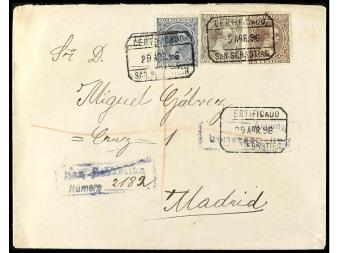 CERTIFICADO
29 ABR. 96
SAN SEBASTIAN
CERTIFICADO
ABR. 96
SAN SEBASTIAN
Sr. D.
Miguel Gálvez
= Cruz 1
ERTIFICADO
29 APR. 96
EBASTIAN
San Sebastian
Número 2182
Madrid